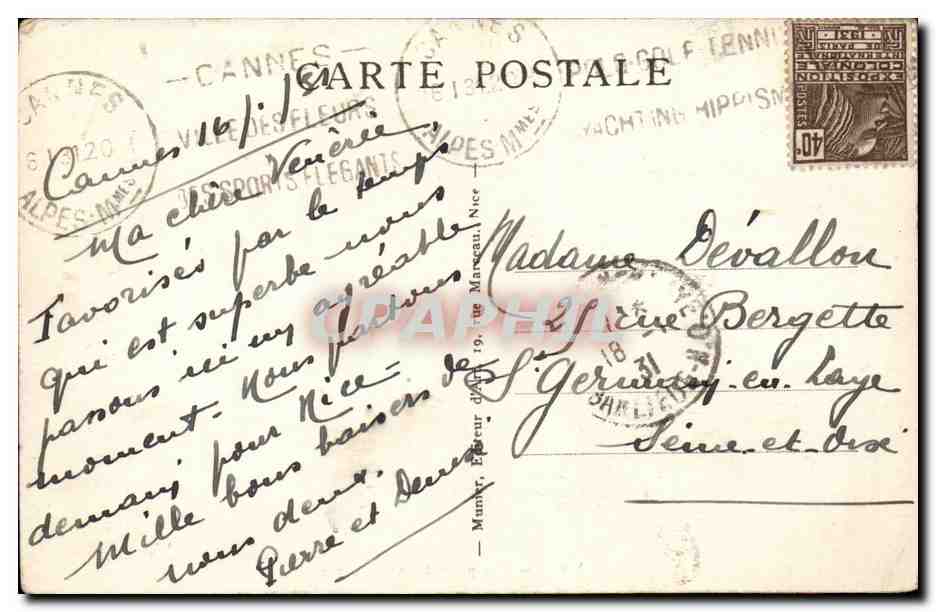 CARTE POSTALE
— CANNES —
VILLE DES FLEURS
DES SPORTS ÉLÉGANTS
CANNES
ALPES-Mmes
CANNES
ALPES-Mmes
GOLF TENNIS
YACHTING HIPPISME
EXPOSITION
COLONIALE
INTERNATIONALE
PARIS
1931
POSTES
40c
Cannes 16/1/31
Ma chère Vénérée,
Favorisés par le temps
qui est superbe nous
passons ici un agréable
moment. Nous partons
demain pour Nice –
Mille bons baisers de
nous deux.
Pierre et Denise
— Munier, Editeur d'Art, 19, rue Marceau, Nice —
Madame Dévallon
rue Bergette
St Germain-en-Laye
Seine-et-Oise
18
31
CPAPHIL